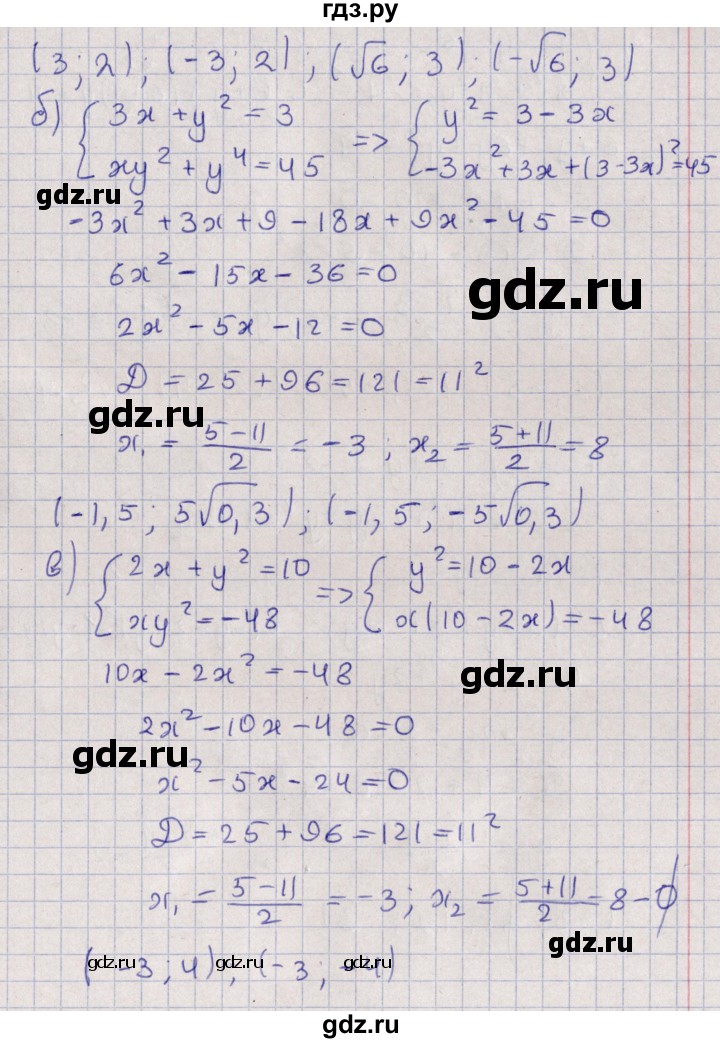 гдз.ру
(3; 2); (-3; 2); (√6; 3); (-√6; 3)
б) { 3x + y² = 3 => { y² = 3 - 3x
xy² + y⁴ = 45 -3x² + 3x + (3-3x)² = 45
gdz.ru
-3x² + 3x + 9 - 18x + 9x² - 45 = 0
6x² - 15x - 36 = 0
gdz.ru
2x² - 5x - 12 = 0
D = 25 + 96 = 121 = 11²
gdz.ru
x₁ = (5-11)/2 = -3; x₂ = (5+11)/2 = 8
(-1,5; 5√0,3); (-1,5; -5√0,3)
в) { 2x + y² = 10 => { y² = 10 - 2x
xy² = -48 x(10 - 2x) = -48
10x - 2x² = -48
gdz.ru
2x² - 10x - 48 = 0
gdz.ru
x² - 5x - 24 = 0
D = 25 + 96 = 121 = 11²
x₁ = (5-11)/2 = -3; x₂ = (5+11)/2 = 8 - ∅
gdz.ru
(-3; 4); (-3; -4)
gdz.ru gdz.ru gdz.ru gdz.ru
gdz.ru